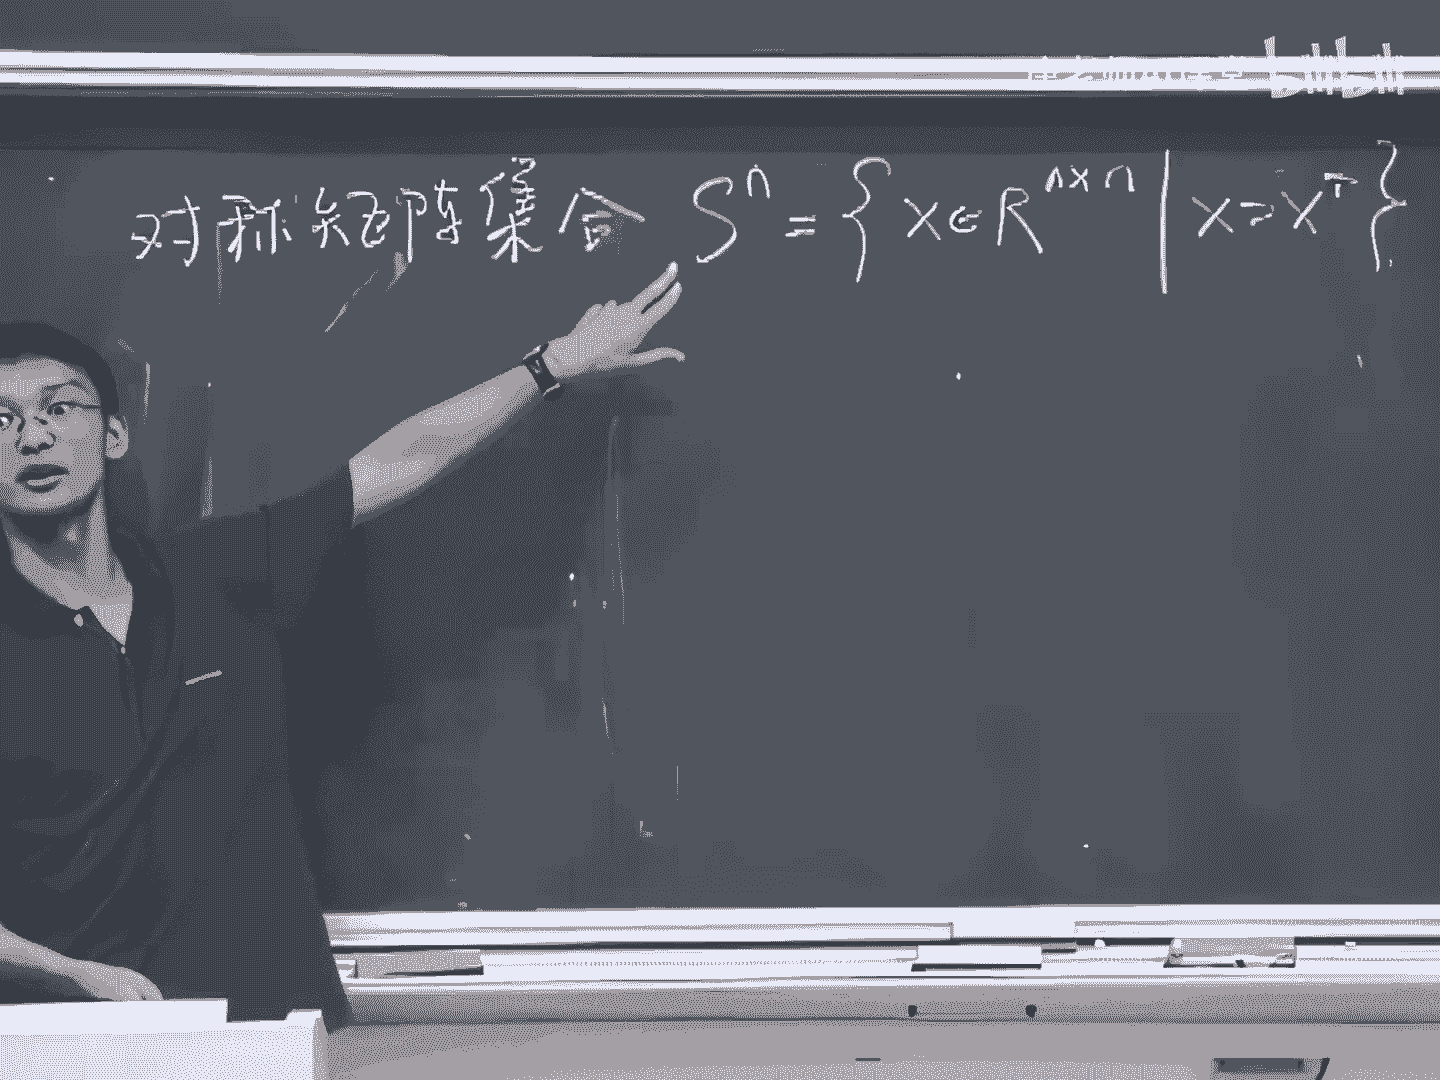 bilibili
对称矩阵集合 Sⁿ = { X ∈ Rⁿˣⁿ | X = Xᵀ }